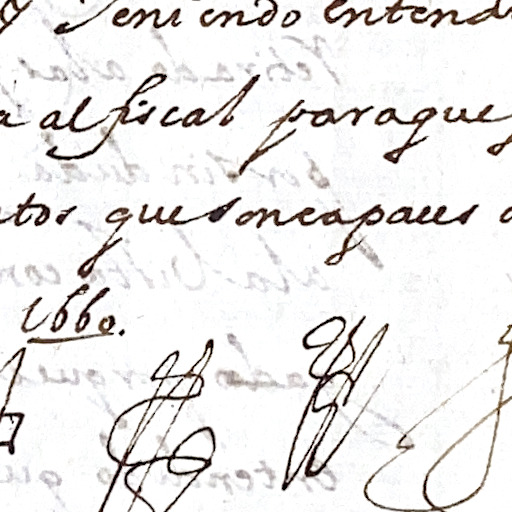 y Teniendo entend
a al fiscal paraque
tos que son capaces
1660.